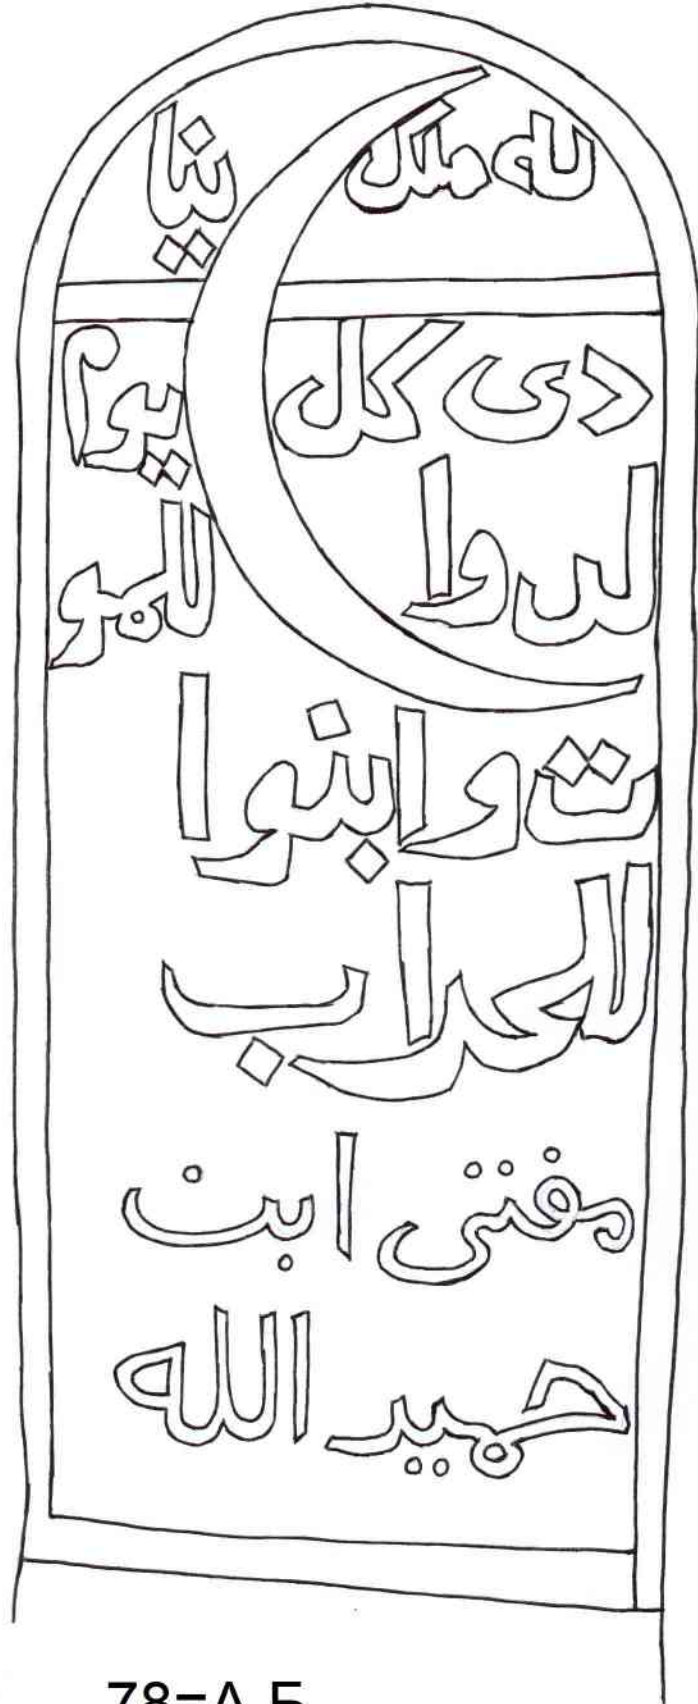 له ملك ينا
دى كل يوم
لدوا للمو
ت وابنوا
للحراب
مفتى ابن
حميد الله
78=А.Б